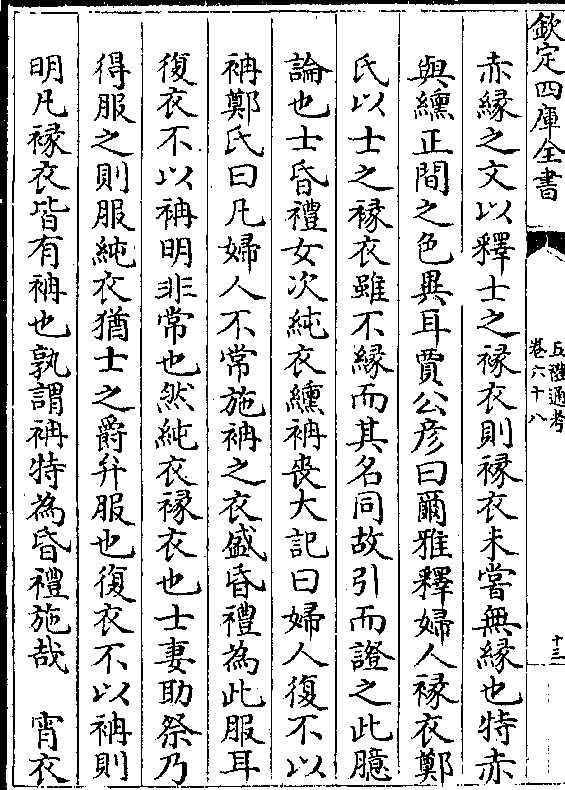 欽定四庫全書
五禮通考
卷六十八
十三
赤緣之文以釋士之褖衣則褖衣未嘗無緣也特赤
與纁正間之色異耳賈公彦曰爾雅釋婦人褖衣鄭
氏以士之褖衣雖不緣而其名同故引而證之此臆
論也士昏禮女次純衣纁袡喪大記曰婦人復不以
袡鄭氏曰凡婦人不常施袡之衣盛昏禮為此服耳
復衣不以袡明非常也然純衣褖衣也士妻助祭乃
得服之則服純衣猶士之爵弁服也復衣不以袡則
明凡褖衣皆有袡也孰謂袡特為昏禮施哉　宵衣